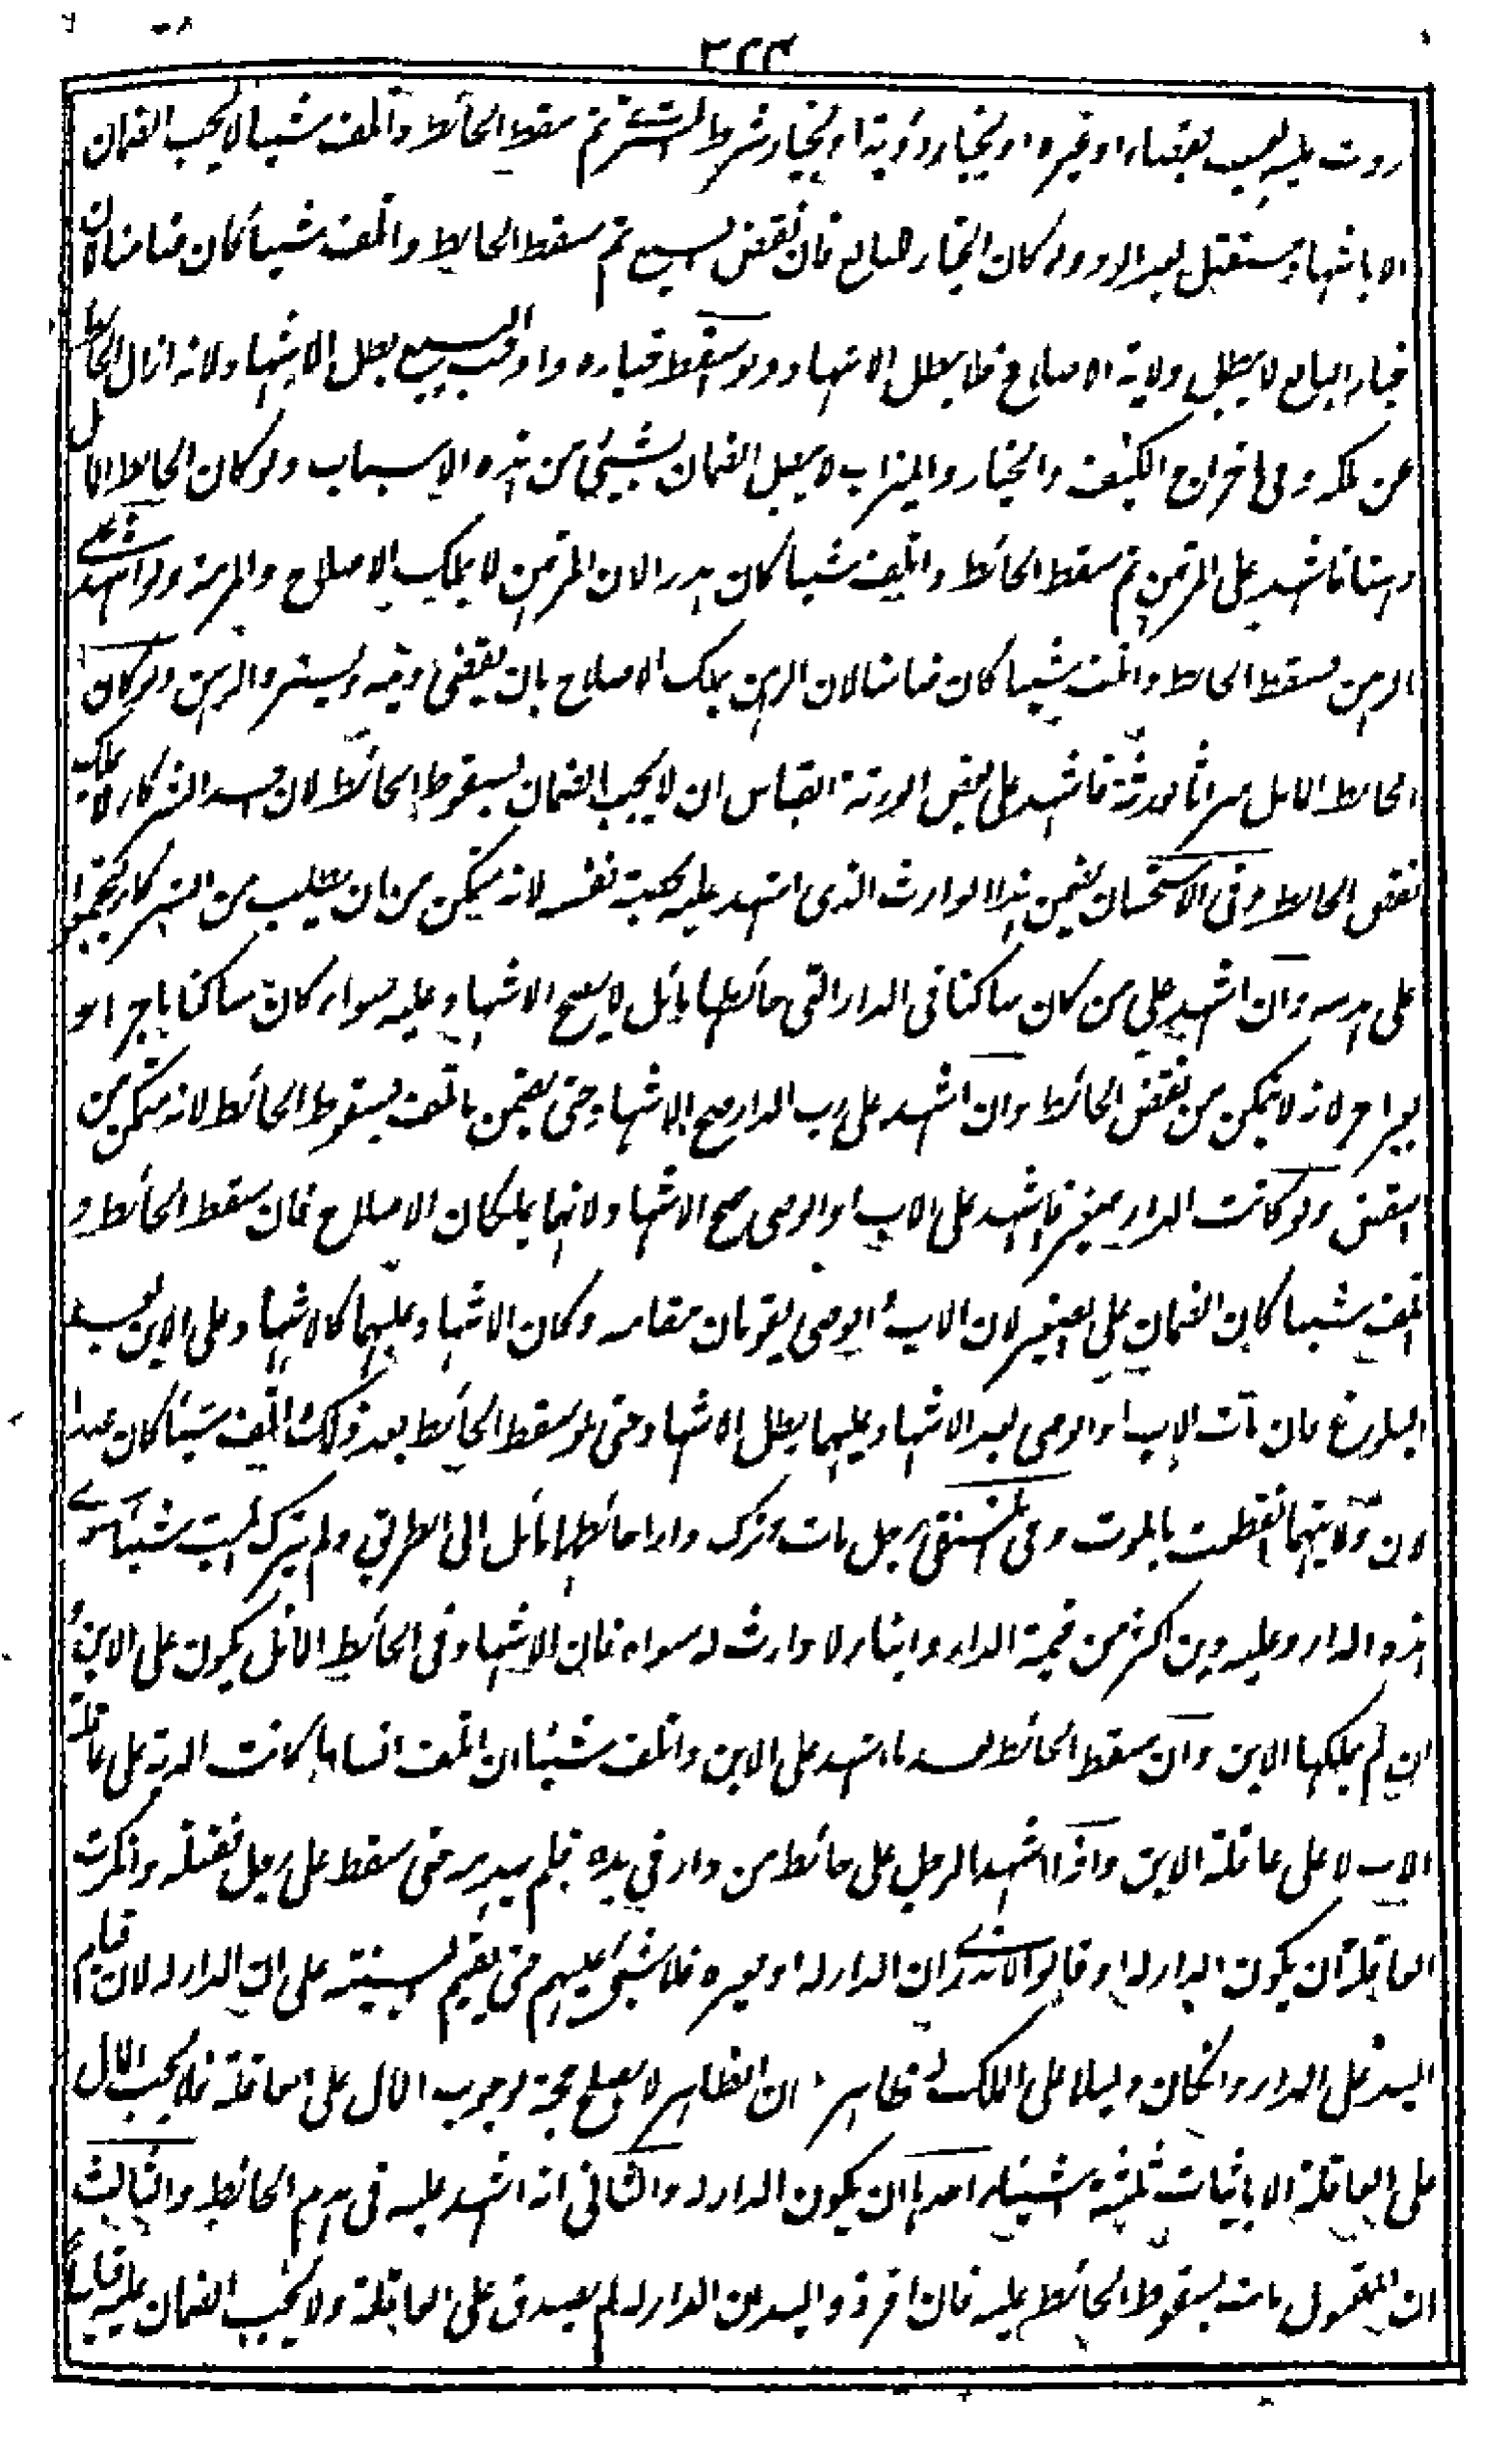 ٣٢٣
ردت عليه بعيب بقضاء او غيره او بخيار رؤية او بخيار شرط للمشتري ثم سقط الحائط واتلف شيئا لا يجب الضمان
الا باشهاد مستقبل بعد الرد ولو كان الخيار للبائع فان نقض البيع ثم سقط الحايط واتلف شيئا كان ضامنا لان
خيار البايع لا يبطل ولاية الاصلاح فلا يبطل الاشهاد ولو اسقط خياره واوجب البيع بطل الاشهاد لانه ازال الحائط
عن ملكه وفي اخراج الكنيف والجناح والميزاب لا يبطل الضمان بشيئ من هذه الاسباب ولو كان الحايط المائل
رهنا فاشهد على المرتهن ثم سقط الحائط واتلف شيئا كان هدرا لان المرتهن لا يملك الاصلاح والمرمة ولو اشهد على
الراهن فسقط الحايط واتلف شيئا كان ضامنا لان الراهن يملك الاصلاح بان يقضي دينه ويسترد الرهن ولو كان
الحايط المائل ميراثا لورثة فاشهد على بعض الورثة القياس ان لا يجب الضمان بسقوط الحائط لان احد الشركاء لا يملك
نقض الحايط وفي الاستحسان يضمن هذا الوارث الذي اشهد عليه بحصة نفسه لانه يتمكن من ان يطلب من الشركاء ليجتمعوا
على هدمه وان اشهد على من كان ساكنا في الدار التي حائطها مائل لا يصح الاشهاد عليه سواء كان ساكنا باجر او
بغير اجر لانه لا يتمكن من نقض الحائط وان اشهد على رب الدار صح الاشهاد حتى يضمن ما تلف بسقوط الحائط لانه متمكن من
النقض ولو كانت الدار لصغير فاشهد على الاب او الوصي صح الاشهاد لانهما يملكان الاصلاح فان سقط الحائط و
اتلف شيئا كان الضمان على الصغير لان الاب او الوصي يقومان مقامه وكان الاشهاد عليهما كالاشهاد على الابن بعد
البلوغ فان مات الاب او الوصي بعد الاشهاد عليهما بطل الاشهاد حتى لو سقط الحائط بعد ذلك واتلف شيئا كان هدرا
لان ولايتهما انقطعت بالموت وفي المنتقى رجل مات وترك دارا حائطها مائل الى الطريق ولم يترك الميت شيئا سوى
هذه الدار وعليه دين اكثر من قيمة الدار وابنا لا وارث له سواه فان الاشهاد في الحائط المائل يكون على الابن و
ان لم يملكها الابن وان سقط الحائط بعد ما اشهد على الابن واتلف شيئا ان اتلف انسانا كانت الدية على عاقلة
الاب لا على عاقلة الابن واذا اشهد الرجل على حائط من دار في يده فلم يهدمه حتى سقط على رجل فقتله وانكرت
العاقلة ان يكون الدار له او قالوا لا ندري ان الدار له او لغيره فلا شيئ عليهم حتى يقيم البينة على ان الدار له لان قيام
اليد على الدار وان كان دليلا على الملك ظاهرا ان الظاهر لا يصلح حجة لوجوب المال على العاقلة فلا يجب المال
على العاقلة الا باثبات ثلثة اشياء احدها ان يكون الدار له والثاني انه اشهد عليه في هدم الحائط والثالث
ان المقتول مات بسقوط الحائط عليه فان اقر ذو اليد ان الدار له لم يصدق على العاقلة ولا يجب الضمان عليه قياسا